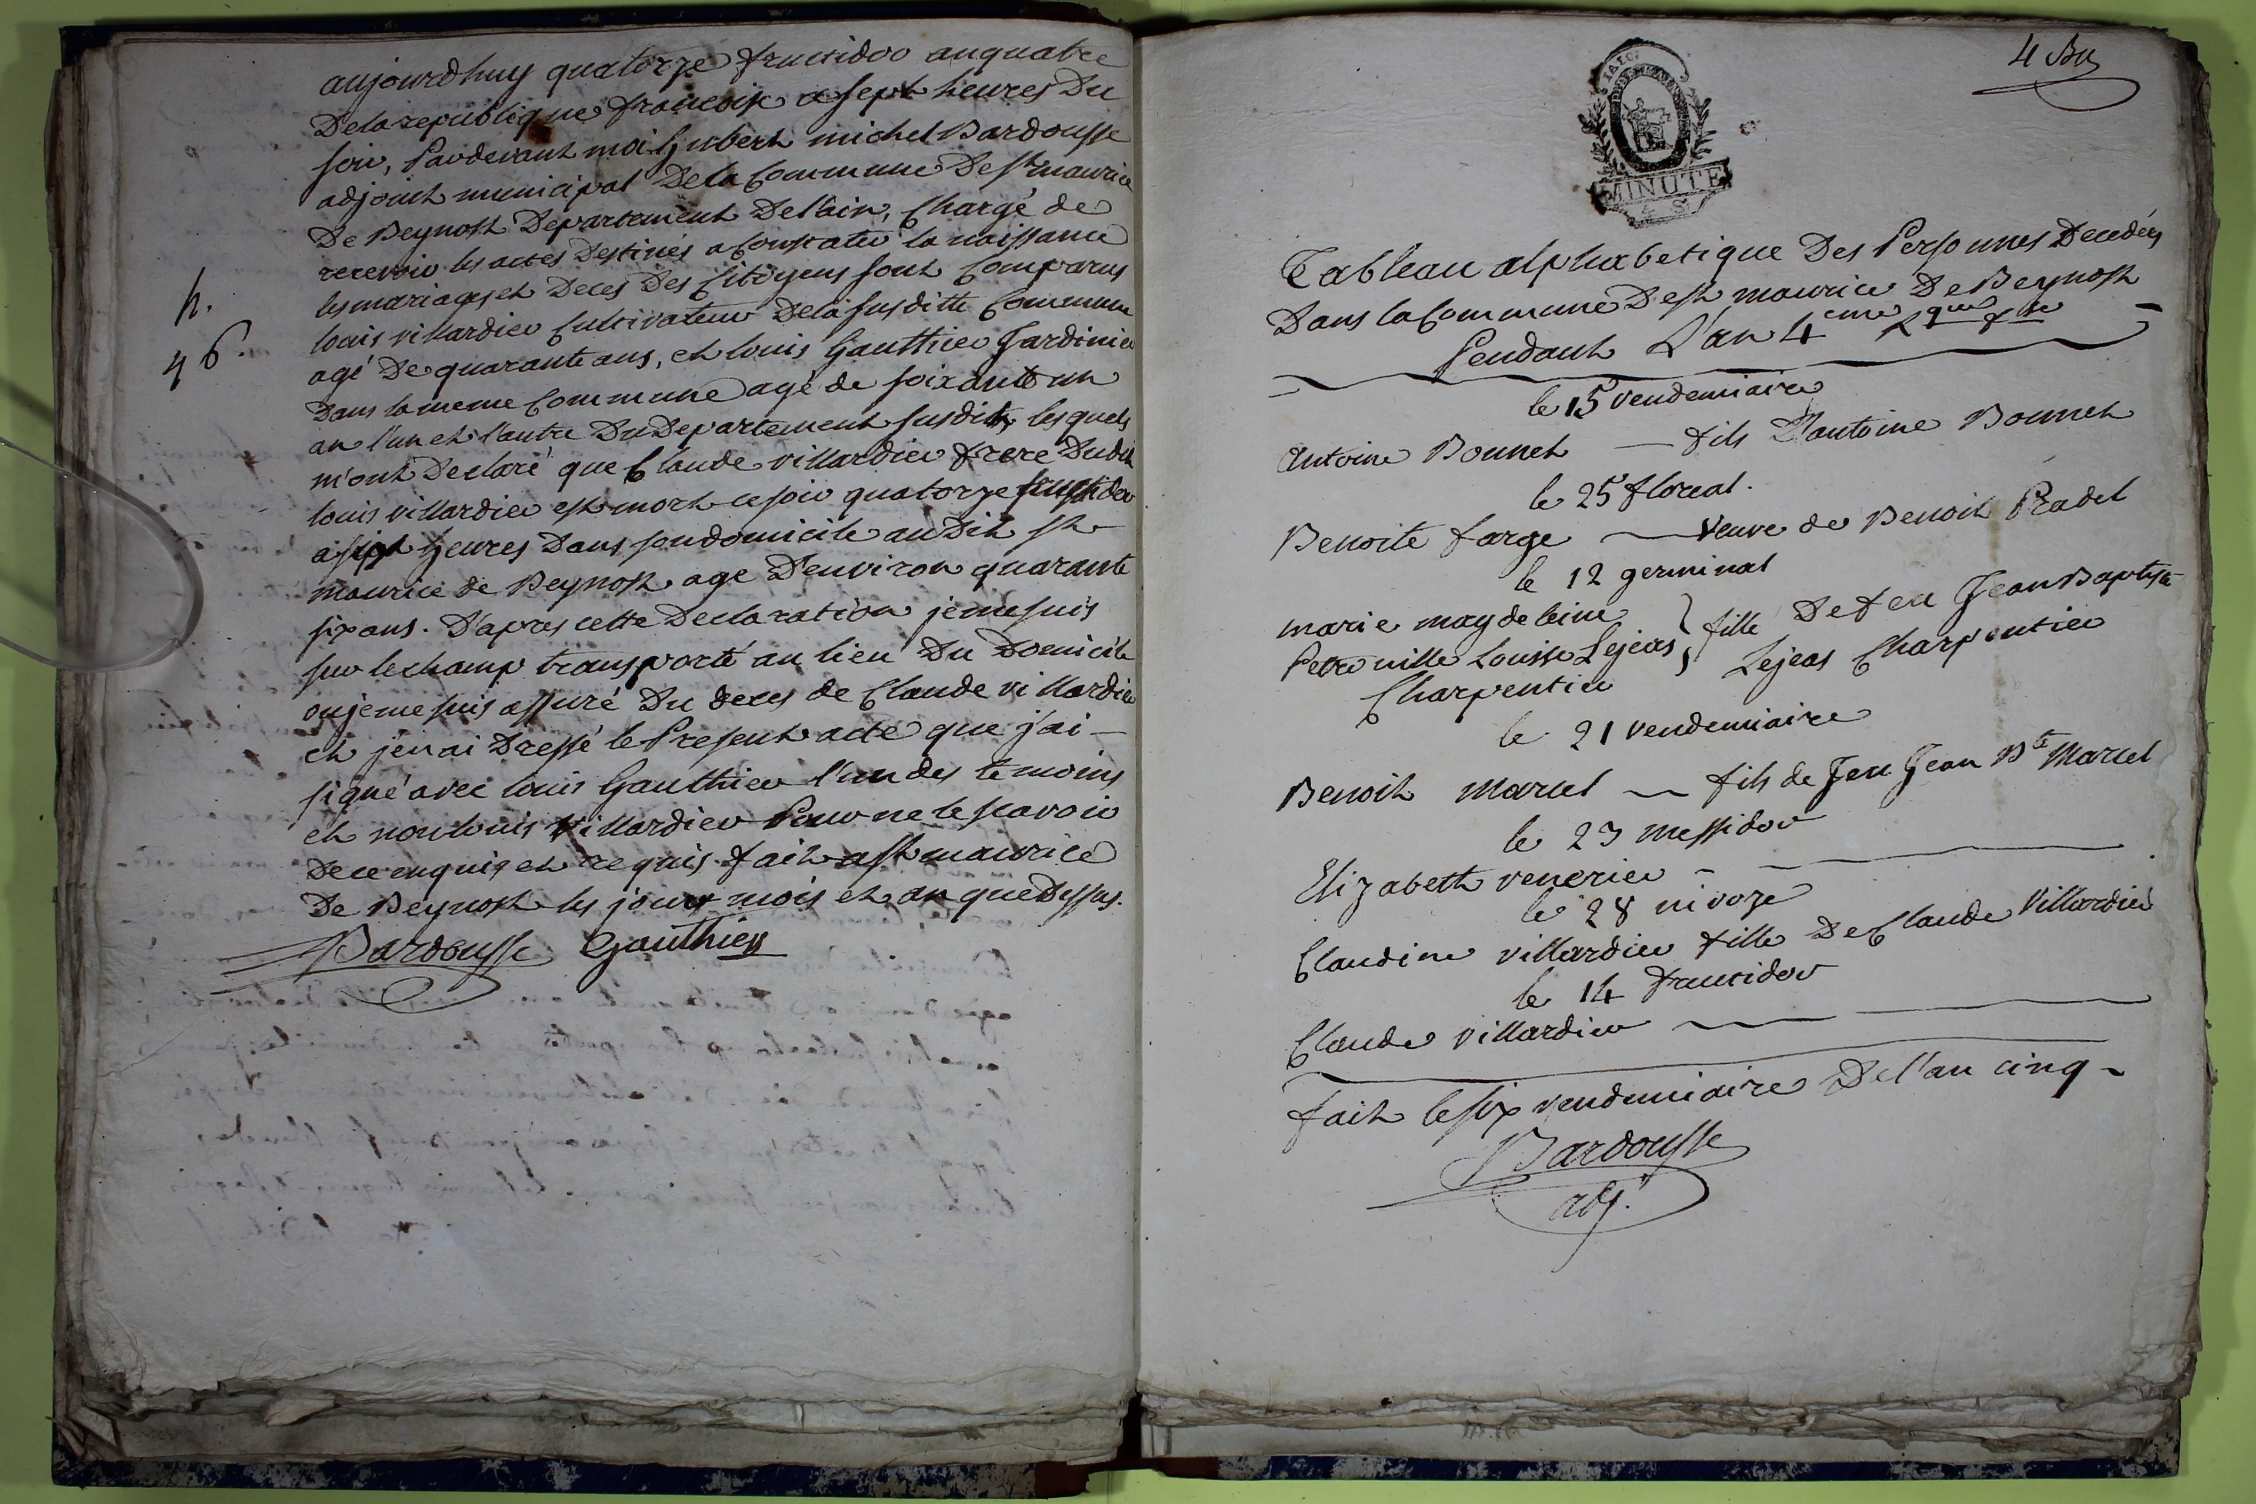 aujourdhuy quatorze fructidor an quatre
De la republique francoise a sept heures Du
soir, Pardevant moi hubert michel Bardousse
adjoint municipal De la Commune De st maurice
De Beynost Departement De l'ain, Chargé de
recevoir les actes Destinés a Constater la naissance
les mariages et Deces Des Citoyens sont Comparus
louis villardier Cultivateur De la susditte Commune
agé De quarante ans, et louis Gauthier Jardinier
Dans la meme Commune agé de soixante un
an l'un et l'autre Du Departement susdit, les quels
m'ont Declaré que Claude villardier frere Dudit
louis villardier est mort ce soir quatorze fructidor
a sept heures Dans son domicile au Dit st
maurice de Beynost age D'environ quarante
six ans. D'apres cette Declaration je me suis
sur le champ transporté au lieu Du Domicile
ou je me suis assuré Du deces de Claude villardier
et j'en ai Dressé le Present acte que j'ai
signé avec louis Gauthier l'un des temoins
et non louis villardier Pour ne le scavoir
De ce enquis et requis. fait a st maurice
De Beynost les jour mois et an que Dessus.
Bardousse Gauthier
h.
46.
4
MINUTE
Tableau alphabetique Des Personnes Decedées
Dans la Commune De st maurice De Beynost
Pendant L'an 4eme
le 15 vendemiaire
Antoine Bonnet — fils D'antoine Bonnet
le 25 floreal.
Benoite farge — veuve de Benoit Pradel
le 12 germinal
marie magdeleine } fille De feu Jean Baptiste
Petronille Louise Lejeas Lejeas Charpentier
Charpentier
le 21 vendemiaire
Benoit Marcel — fils de feu Jean Bte Marcel
le 23 messidor
Elizabeth venerier —
le 28 nivoze
Claudine villardier fille De Claude Villardier
le 14 fructidor
Claude villardier —
fait le six vendemiaire De l'an cinq
Bardousse
adj.